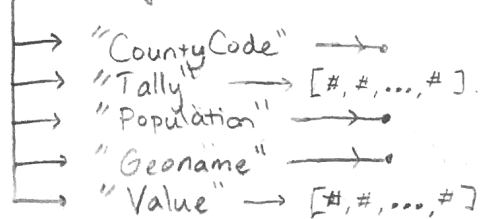 "CountyCode"
"Tally" [#, #, ..., #].
"Population"
"Geoname"
"Value" [#, #, ..., #]